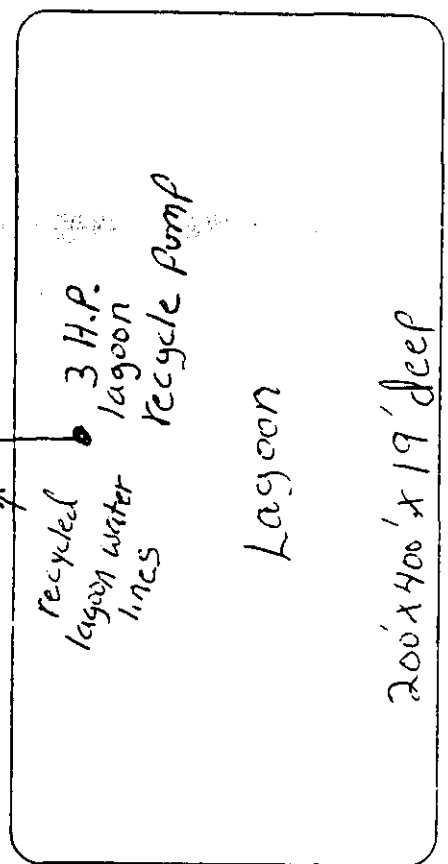 recycled
lagoon water
lines
3 H.P.
lagoon
recycle Pump
Lagoon
200' x 400' x 19' deep